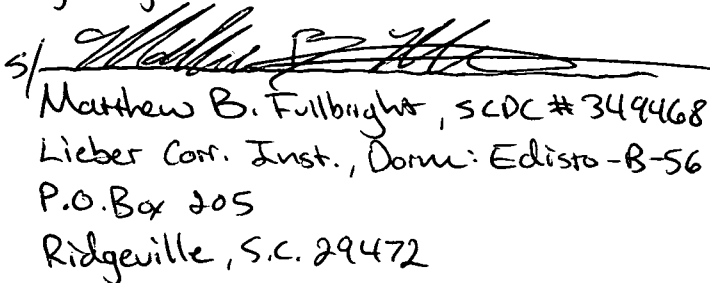 s/
Matthew B. Fullbright, SCDC # 349468
Lieber Corr. Inst., Dorm: Edisto-B-56
P.O. Box 205
Ridgeville, S.C. 29472